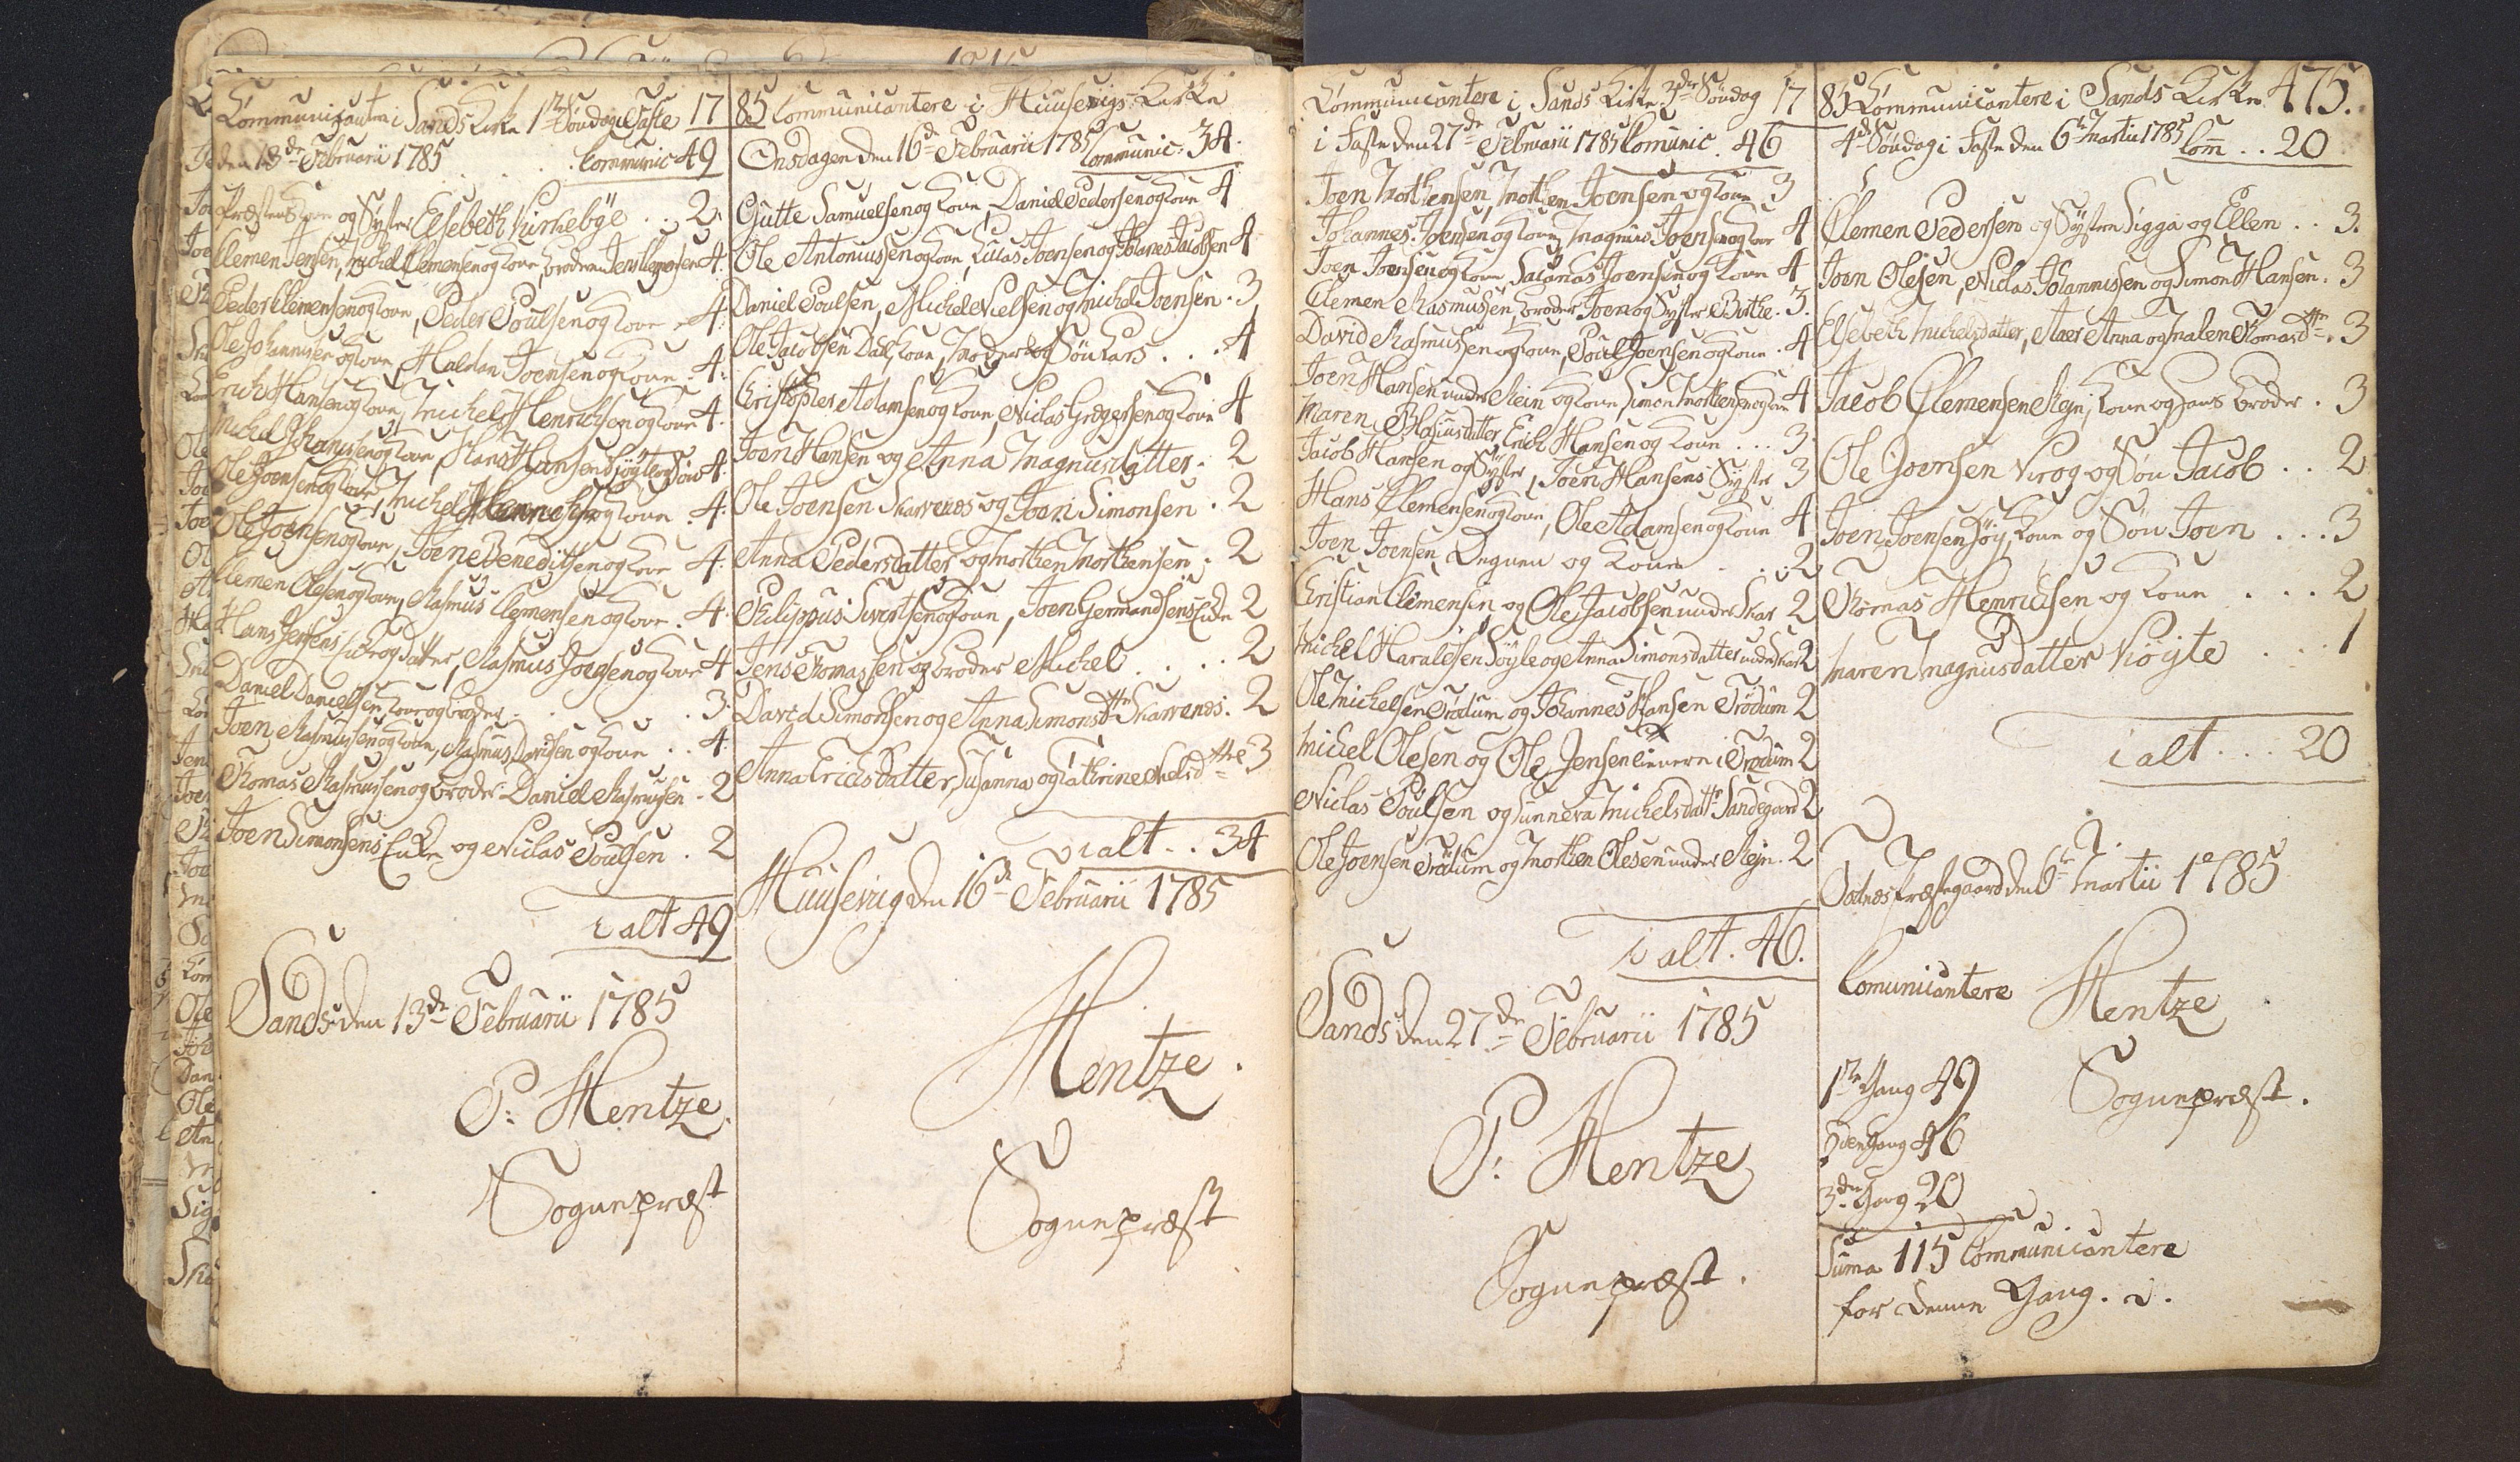 Communicantere i Sands Kirke 1ste Søndag i Faste 17
den 13de Februarii 1785 . . . Communic 49
Præstens Kone og Syster Elsebeth Kirkebÿe . . 2.
Clemen Jensen, Michel Clemensen og Kone, broderen Jens Clemensen 4.
Peder Clemensen og Kone, Peder Poulsen og Kone 4.
Ole Johannisen og Kone, Haldan Joensen og Kone . 4.
Erich Hansen og Kone, Michel Henrichsen og Kone 4.
Michel Johannisen og Kone, Hans Hansen og Søn 4.
Ole Joensen og Kone, Michel Henrichsen og Kone . 4.
Ole Joensen og Kone, Joen Benedictsen og Kone 4.
Clemen Olesen og Kone, Rasmus Clemensen og Kone . 4.
Hans Jensens Enke og datter, Rasmus Joensen og Kone 4
Daniel Danielsen, Kone og broder . . 3.
Joen Rasmussen og Kone, Rasmus Davidsen og Kone . . 4.
Thomas Rasmussen og broder Daniel Rasmusen . 2
Joen Simonsens Enke og Niclas Poulsen . 2
i alt 49
Sands den 13de Februarii 1785
P: Hentze.
Sognepræst
85 Communicantere i Huusevigs Kirke
Onsdagen den 16de Februarii 1785 Communic: 34.
Gutte Samuelsen og Kone, Daniel Pedersen og Kone 4
Ole Antoniussen og Kone, Lucas Joensen og Johanes Jacobsen 4
Daniel Poulsen, Michel Nielsen og Michel Joensen . 3
Ole Jacobsen Dahl, Kone, Moder og Søn Lars . . . 4
Christopher Adamsen og Kone, Niclas Gregersen og Kone 4
Joen Hansen og Anna Magnusdatter . 2
Ole Joensen Skarvenes og Joen Simonsen . 2
Anna Pedersdatter og Morten Mortensen . 2
Philippus Sivertsen og Kone, Joen Germandsens Enke 2
Jens Thomassen og broder Michel . . . . 2
David Simonsen og Anna Simonsdttr Skarvenes . 2
Anna Erichsdatter, Susanna og Cathrine Nielsdttre 3
i alt . . 34
Huusevig den 16de Februarii 1785
Hentze.
Sognepræst
Communicantere i Sands Kirke 3die Søndag 17
i Faste den 27de Februarii 1785 Comunic . 46
Joen Mortensen, Morten Joensen og Kone 3
Johannes Joensen og Kone, Magnus Joensen og Kone 4
Joen Joensen og Kone, Sacarias Joensen og Kone 4
Clemen Rasmussen, broder Joen og Syster Birthe . 3.
David Rasmussen og Kone, Poul Joensen og Kone . 4
Joen Hansen under Rein og Kone, Simon Mortensen og Kone 4
Maren Blasiusdatter, Erich Hansen og Kone . . . 3
Jacob Hansen og Syster, Joen Hansens Syster 3
Hans Clemensen og Kone, Ole Adamsen og Kone 4
Joen Joensen Degnen og Kone . . . 2
Christian Clemensen og Ole Jacobsen under Skar 2
Michel Haraldsen Søyle og Anna Simonsdatter under Skar 2
Ole Michelsen Trødum og Johannes Hansen Trødum 2
Michel Olesen og Ole Jensen i Trødum 2
Niclas Poulsen og Sunneva Michelsdattr Sandegaard 2
Ole Joensen Trødum og Morten Olesen under Rejn . 2
i alt . 46.
Sands den 27de Februarii 1785
P: Hentze
Sognepræst.
85 Communicantere i Sands Kirke 475.
4de Søndag i Faste den 6te Martii 1785 Com . . 20
Clemen Pedersen og Systre Sigga og Ellen . . 3.
Joen Olesen, Niclas Johannisen og Simon Hansen . 3
Elsebeth Michelsdatter, Anna og Malen Thomasdttr . 3
Jacob Clemensen Rejn, Kone og hans broder . 3
Ole Joensen Krog og Søn Jacob . . 2
Joen Joensen Høy, Kone og Søn Joen . . . 3
Thomas Henricsen og Kone . . . 2
Maren Magnusdatter Krøyte . . . 1
i alt . . . 20
Todnæs Præstegaard den 6te Martii 1785
Comunicantere Hentze
Sognepræst.
1ste Gang 49
2den Gang 46
3die Gang 20
Suma 115 Communicantere
for denne Gang.